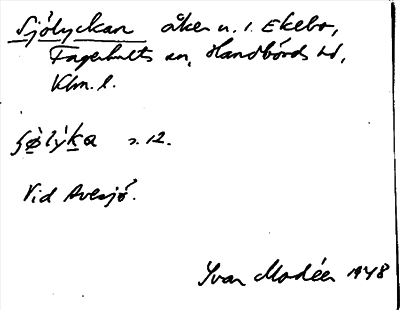 Sjölyckan åker n. 1. Ekebo,
Fagerhults sn, Handbörds hd,
Klm. l.
ʃø̀lýka s. 12.
Vid Avesjö.
Yvar Modéer 1948